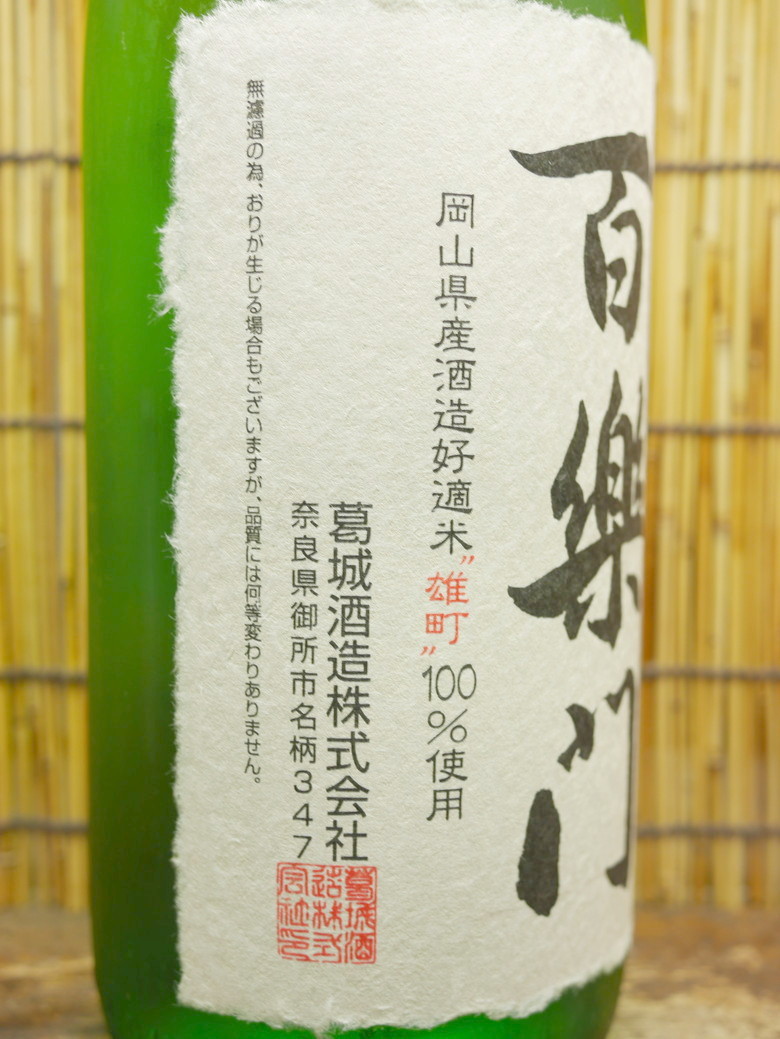 百樂門
岡山県産酒造好適米"雄町"100%使用
葛城酒造株式会社
奈良県御所市名柄347
葛城酒
造株式
会社印
無濾過の為、おりが生じる場合もございますが、品質には何等変わりありません。